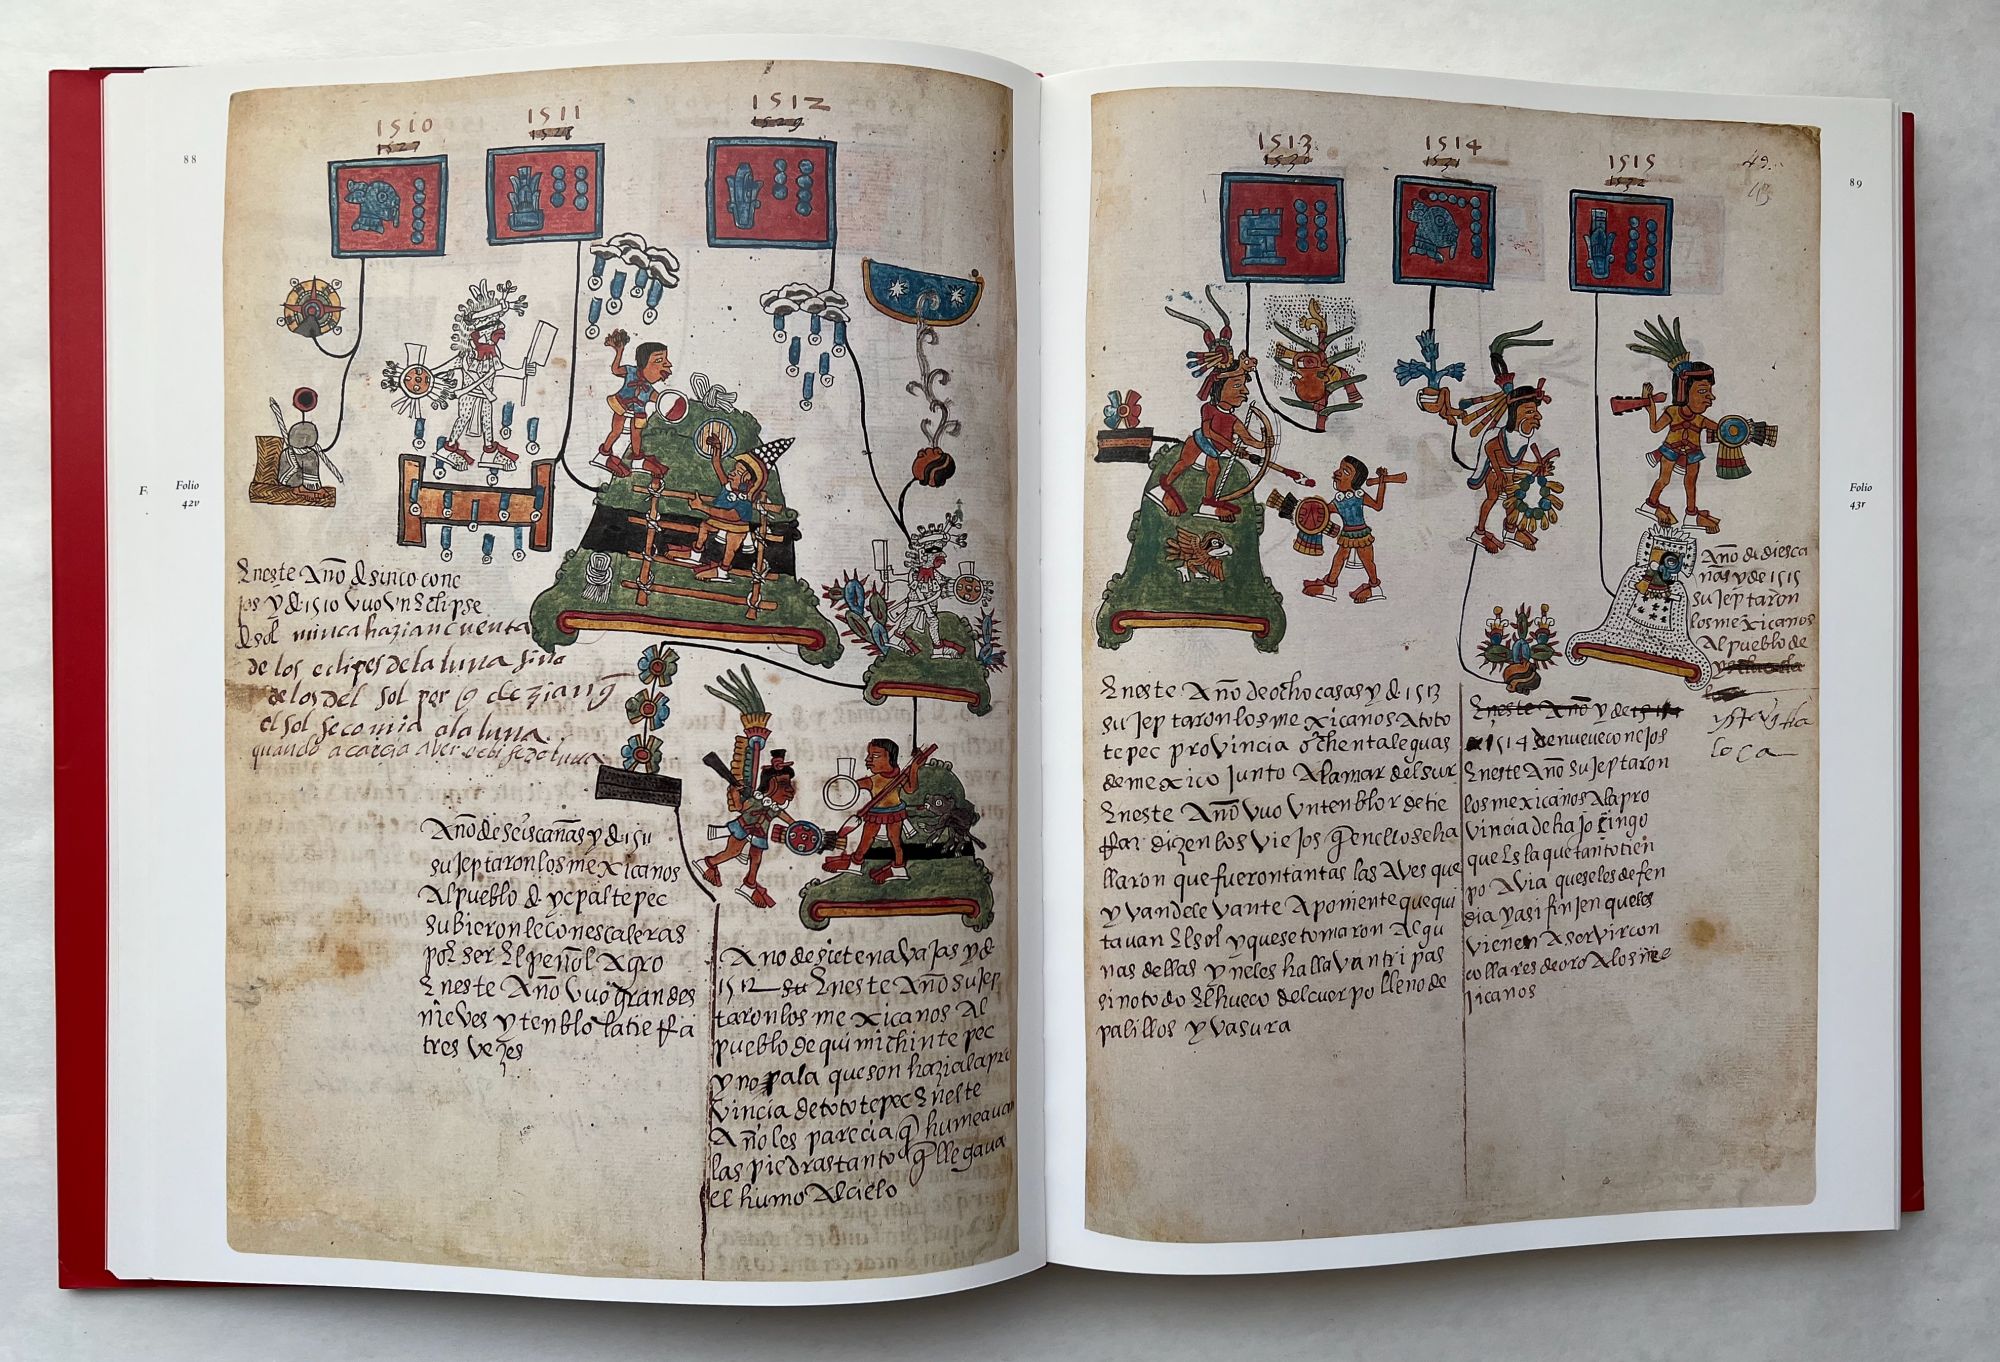 88
Folio
42v
F
1510
1527
1511
1528
1512
1529
Eneste Año de sinco cone
jos y de 1510 vuo un Eclipse
de sol nunca hazian cuenta
de los eclipses de la luna sino
de los del sol por q dezian q
el sol se comia a la luna
quando acaecia aver eclipse de luna
Año de seis cañas y de 1511
sujeptaron los mexicanos
Al pueblo de ycpaltepec
subieronle con escaleras
por ser El peñol Agro
Eneste Año vuo grandes
nieves y tenblo la tierra
tres vezes
Año de siete navajas y de
1512 su Eneste Año sujep
taron los mexicanos Al
pueblo de quimichintepec
y nopala que son hazia la pro
vincia de tototepec Eneste
Año les parecia q humeavan
las piedras tanto q llegava
el humo Al cielo
89
Folio
43r
49
43
1513
1530
1514
1531
1515
1532
Eneste Año de ocho casas y de 1513
sujeptaron los mexicanos A toto
tepec provincia ochenta leguas
de mexico junto A la mar del sur
Eneste Año vuo un tenblor de tie
rra dizen los viejos q en ellos ha
llaron que fueron tantas las Aves que
yvan de levante A poniente que qui
tavan El sol y que se tomaron Algu
nas dellas y neles hallavan tripas
sino todo El hueco del cuerpo lleno de
palillos y vasura
Eneste Año y de 1514
1514 de nueve conejos
Eneste Año sujeptaron
los mexicanos A la pro
vincia de hajocingo
que Es la que tanto tien
po Avia que se les defen
dia y asi finjen que les
vienen A servir con
collares de oro A los me
jicanos
Año de dies ca
ñas y de 1515
sujeptaron
los mexicanos
Al pueblo de
yztactla
loca